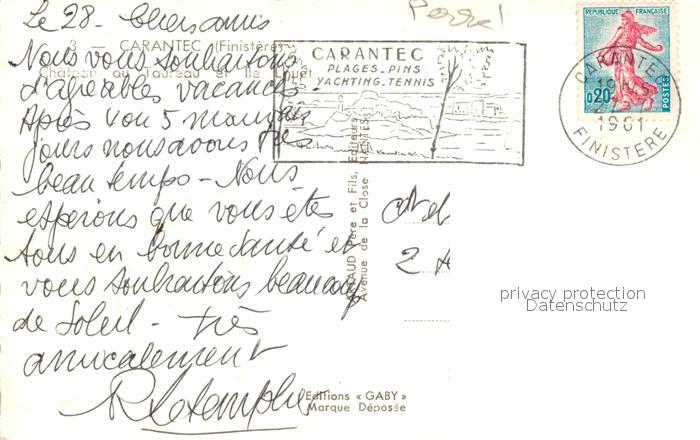 Le 28 - Chers amis
3 — CARANTEC (Finistère)
Nous vous souhaitons
Château du Taureau et Ile Louët
d'agréables vacances -
Après 4 ou 5 mauvais
jours nous avons
beau temps - Nous
espérons que vous êtes
tous en bonne santé et
vous souhaitons beaucoup
de Soleil - très
amicalement
CARANTEC
PLAGES_PINS
YACHTING_TENNIS
RÉPUBLIQUE FRANÇAISE
0,20
POSTES
CARANTEC
1961
FINISTERE
Père et Fils, Editeurs
Avenue de la Close NANTES
privacy protection
Datenschutz
Editions « GABY »
Marque Déposée